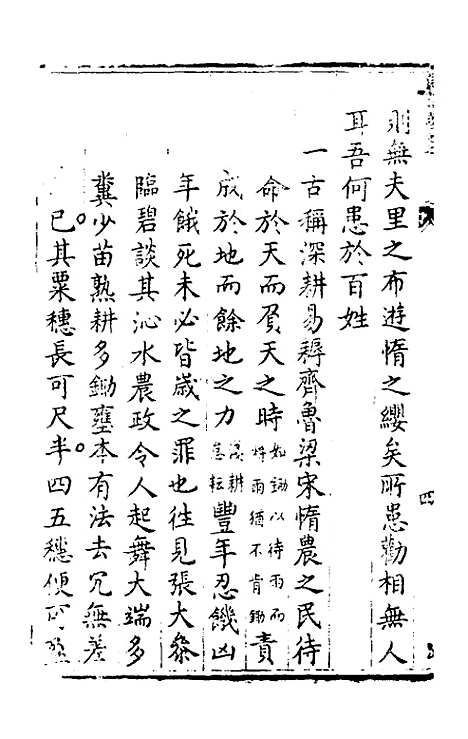 則無夫里之布遊惰之纓矣所患勸相無人
耳吾何患於百姓
一古稱深耕易耨齊魯梁宋惰農之民待
命於天而負天之時如鋤以待雨而將雨猶不肯鋤責
成於地而餘地之力淺耕怠耘豐年忍饑凶
年餓死未必皆歲之罪也往見張大參
臨碧談其沁水農政令人起舞大端多
糞少苗熟耕多鋤壅本有法去冗無差
已其粟穗長可尺半四五穗便可
四